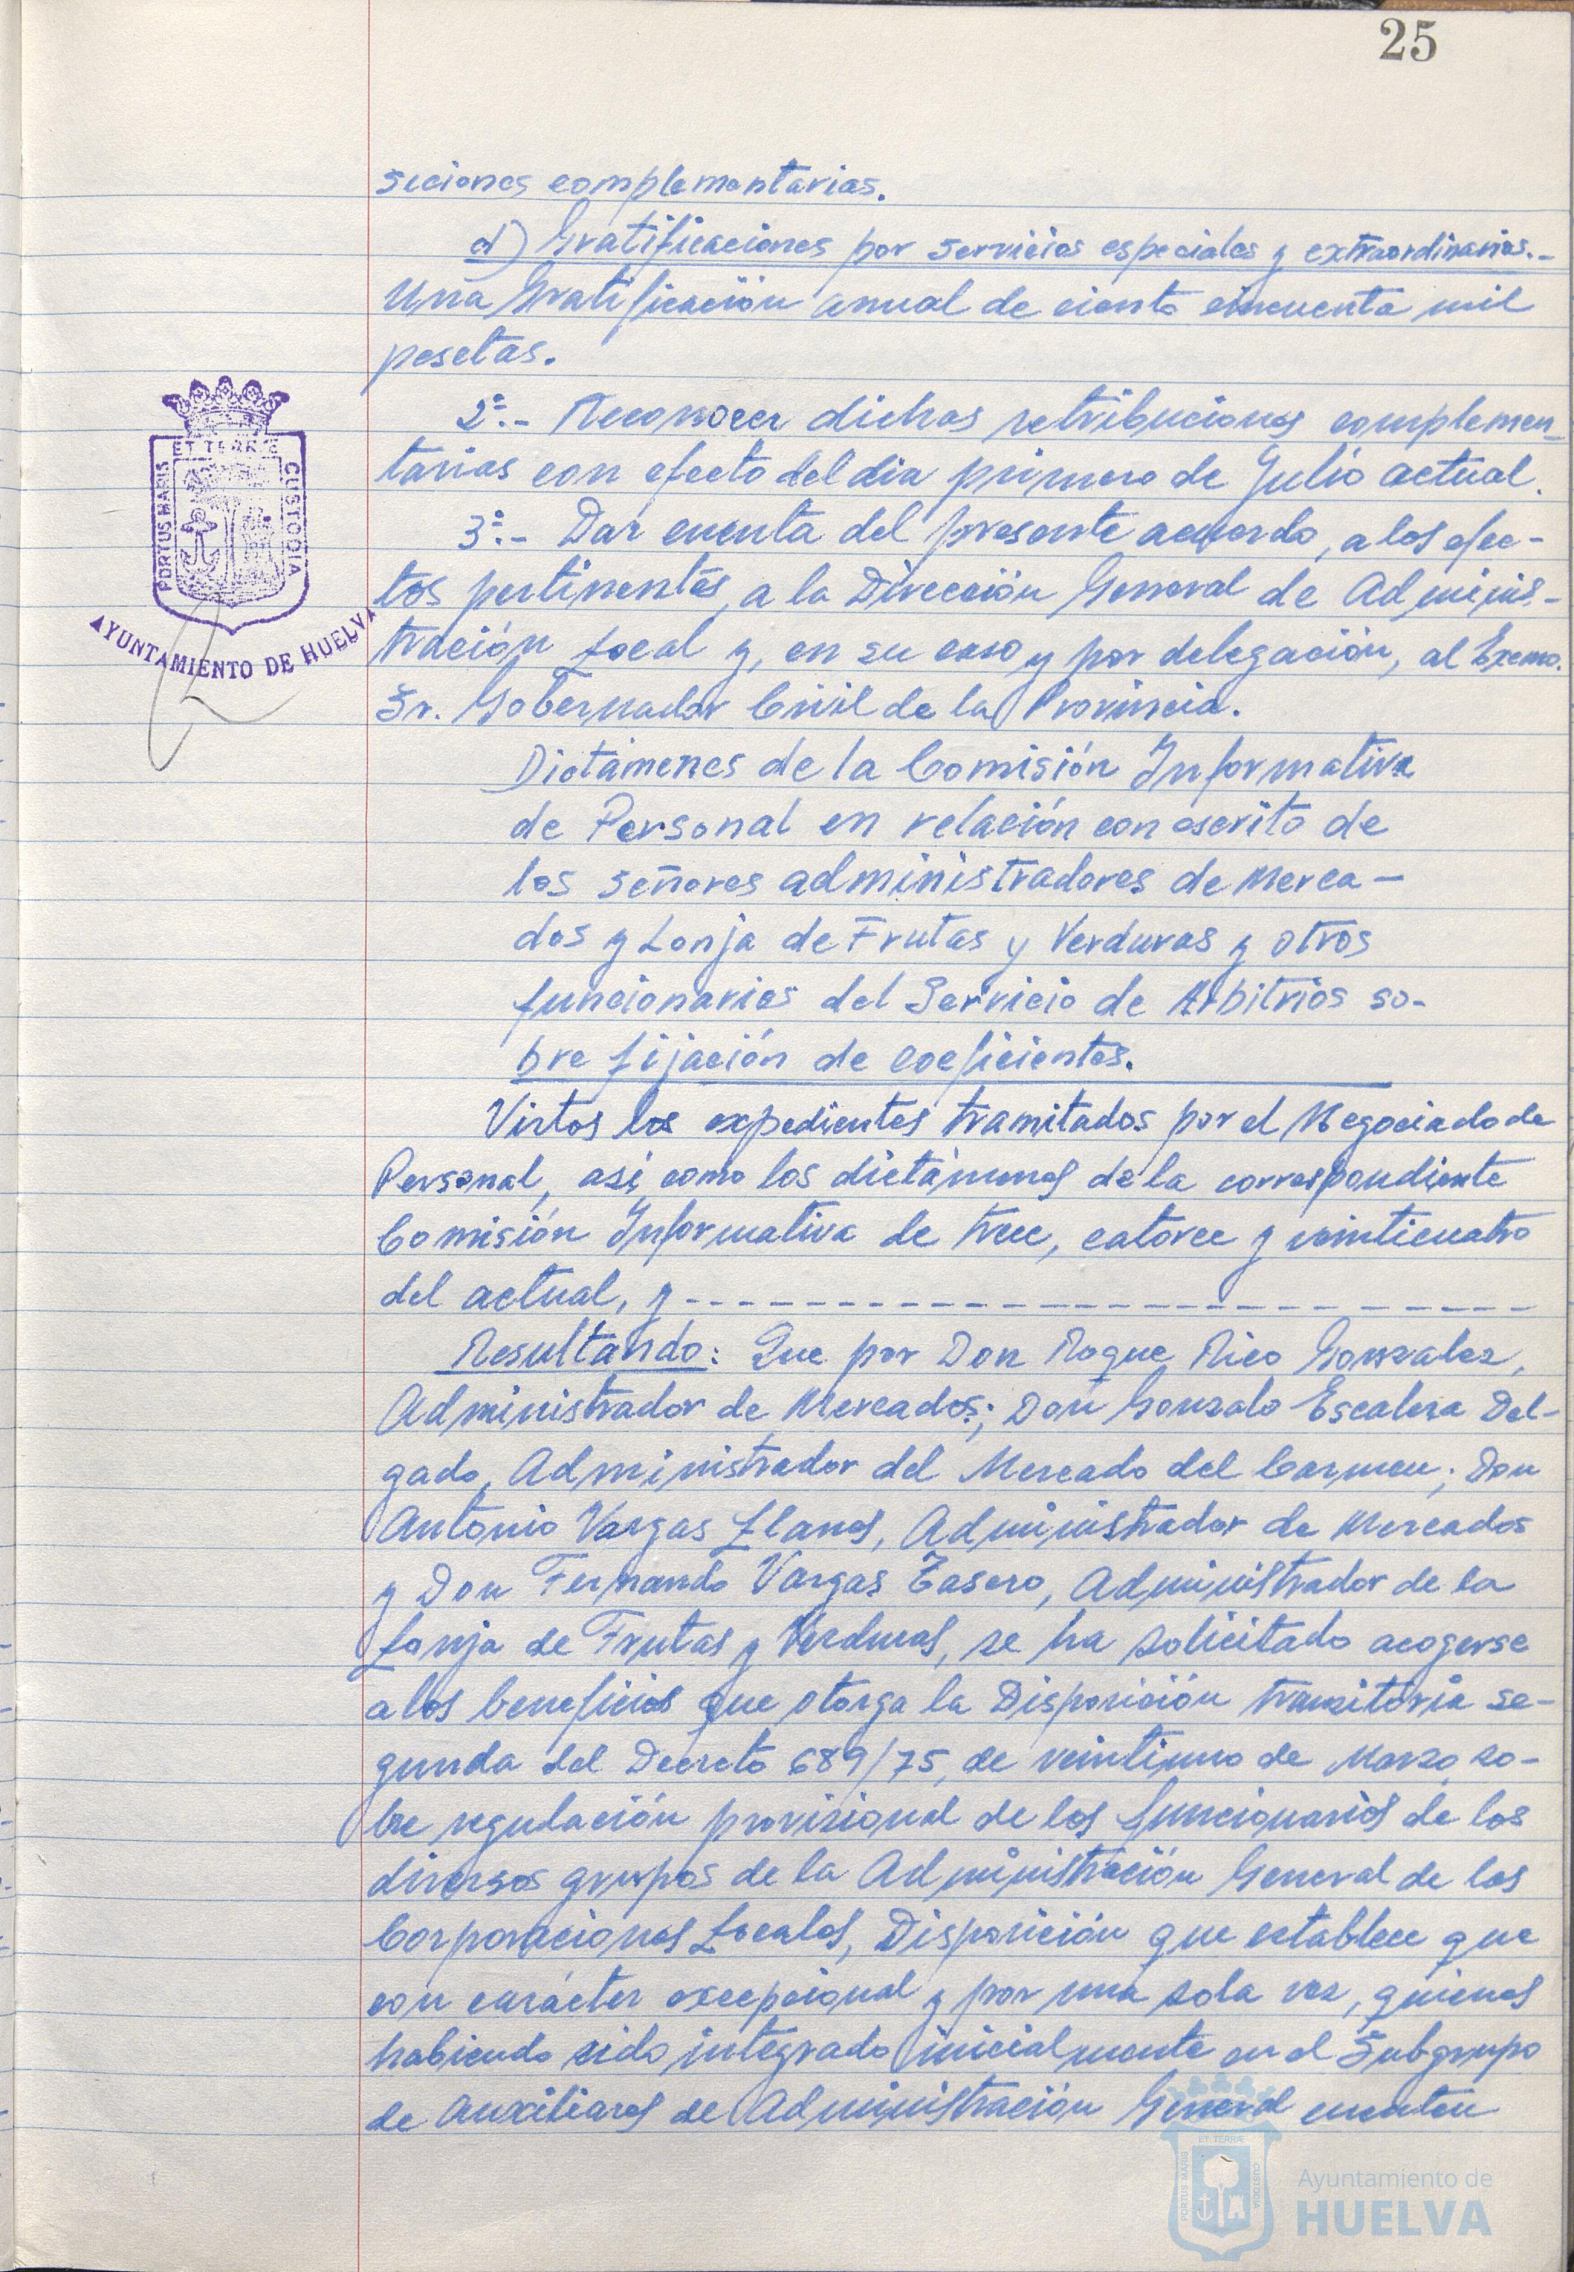 25
siciones complementarias.
d) Gratificaciones por servicios especiales y extraordinarios.-
Una Gratificación anual de ciento cincuenta mil
pesetas.
2º.- Reconocer dichas retribuciones complemen-
tarias con efecto del dia primero de Julio actual.
3º.- Dar cuenta del presente acuerdo, a los efec-
tos pertinentes, a la Dirección General de Adminis-
tración Local y, en su caso y por delegación, al Excmo.
Sr. Gobernador Civil de la Provincia.
Dictámenes de la Comisión Informativa
de Personal en relación con escrito de
los señores administradores de Merca-
dos y Lonja de Frutas y Verduras y otros
funcionarios del Servicio de Arbitrios so-
bre fijación de coeficientes.
Vistos los expedientes tramitados por el Negociado de
Personal, asi como los dictámenes de la correspondiente
Comisión Informativa de trece, catorce y veinticuatro
del actual, y - - - - - - - - - - - - - - - - - - - - - -
Resultando: Que por Don Roque Rico Gonzalez,
Administrador de Mercados; Don Gonzalo Escalera Del-
gado, Administrador del Mercado del Carmen; Don
Antonio Vargas Llanes, Administrador de Mercados
y Don Fernando Vargas Tasero, Administrador de la
Lonja de Frutas y Verduras, se ha solicitado acogerse
a los beneficios que otorga la Disposición transitoria se-
gunda del Decreto 689/75, de veintiuno de Marzo, so-
bre regulación provisional de los funcionarios de los
diversos grupos de la Administración General de las
Corporaciones Locales, Disposición que establece que
con carácter excepcional y por una sola vez, quienes
habiendo sido integrado inicialmente en el Subgrupo
de Auxiliares de Administración General cuenten
PORTUS MARIS ET TERRÆ CUSTODIA
AYUNTAMIENTO DE HUELVA
PORTUS MARIS ET TERRÆ CUSTODIA
Ayuntamiento de
HUELVA